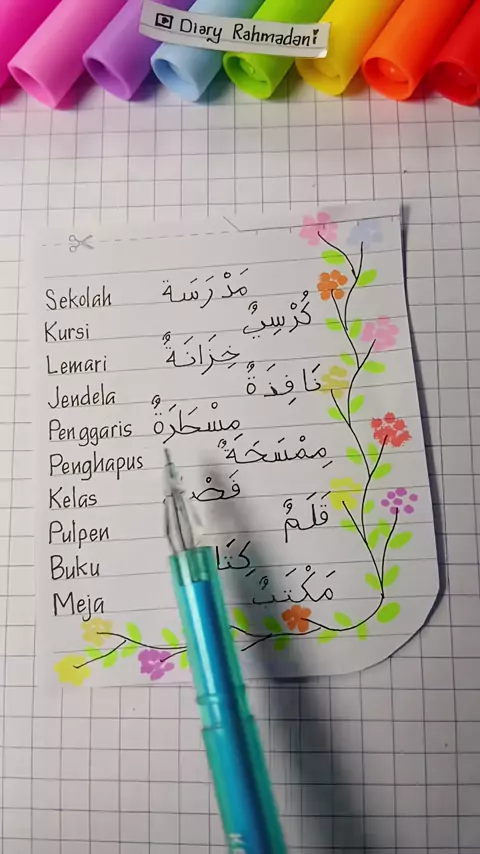 Diary Rahmadani
Sekolah مَدْرَسَة
Kursi كُرْسِيٌ
Lemari خِزَانَةٌ
Jendela نَافِذَةٌ
Penggaris مِسْحَارَةٌ
Penghapus مِمْسَحَةٌ
Kelas
Pulpen قَلَمٌ
Buku
Meja مَكْتَبٌ